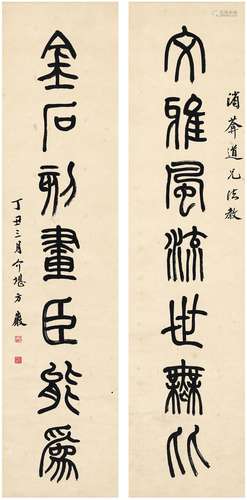 消莽道兄法教
文雅風流世無比
金石刻畫臣能為
丁丑三月介堪方巖